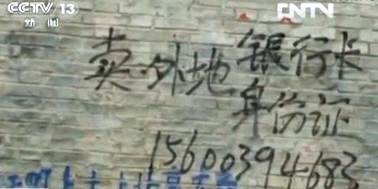 CCTV 13
新闻
CNTV
卖外地银行卡
身份证
15600394683